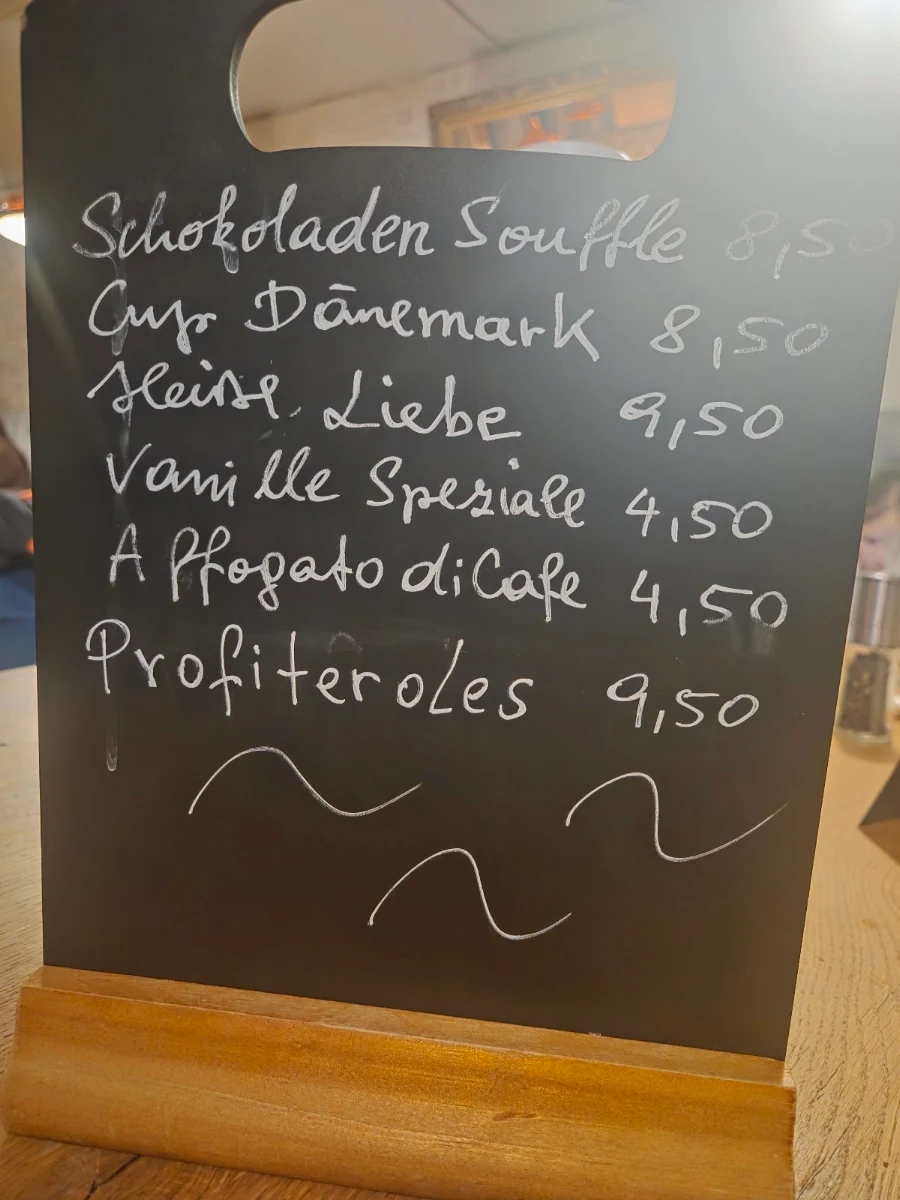 Schokoladen Souffle 8,50
Cup Dänemark 8,50
Heisse Liebe 9,50
Vanille Speziale 4,50
Affogato di Cafe 4,50
Profiteroles 9,50